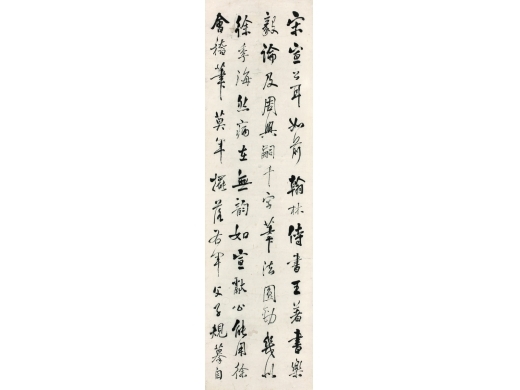 宋宣公耳如前翰林侍書王著書樂
毅論及周興嗣千字筆法圓勁幾似
徐季海然病在無韻如宣獻公能用徐
會稽筆莫年擺落右軍父子規摹自